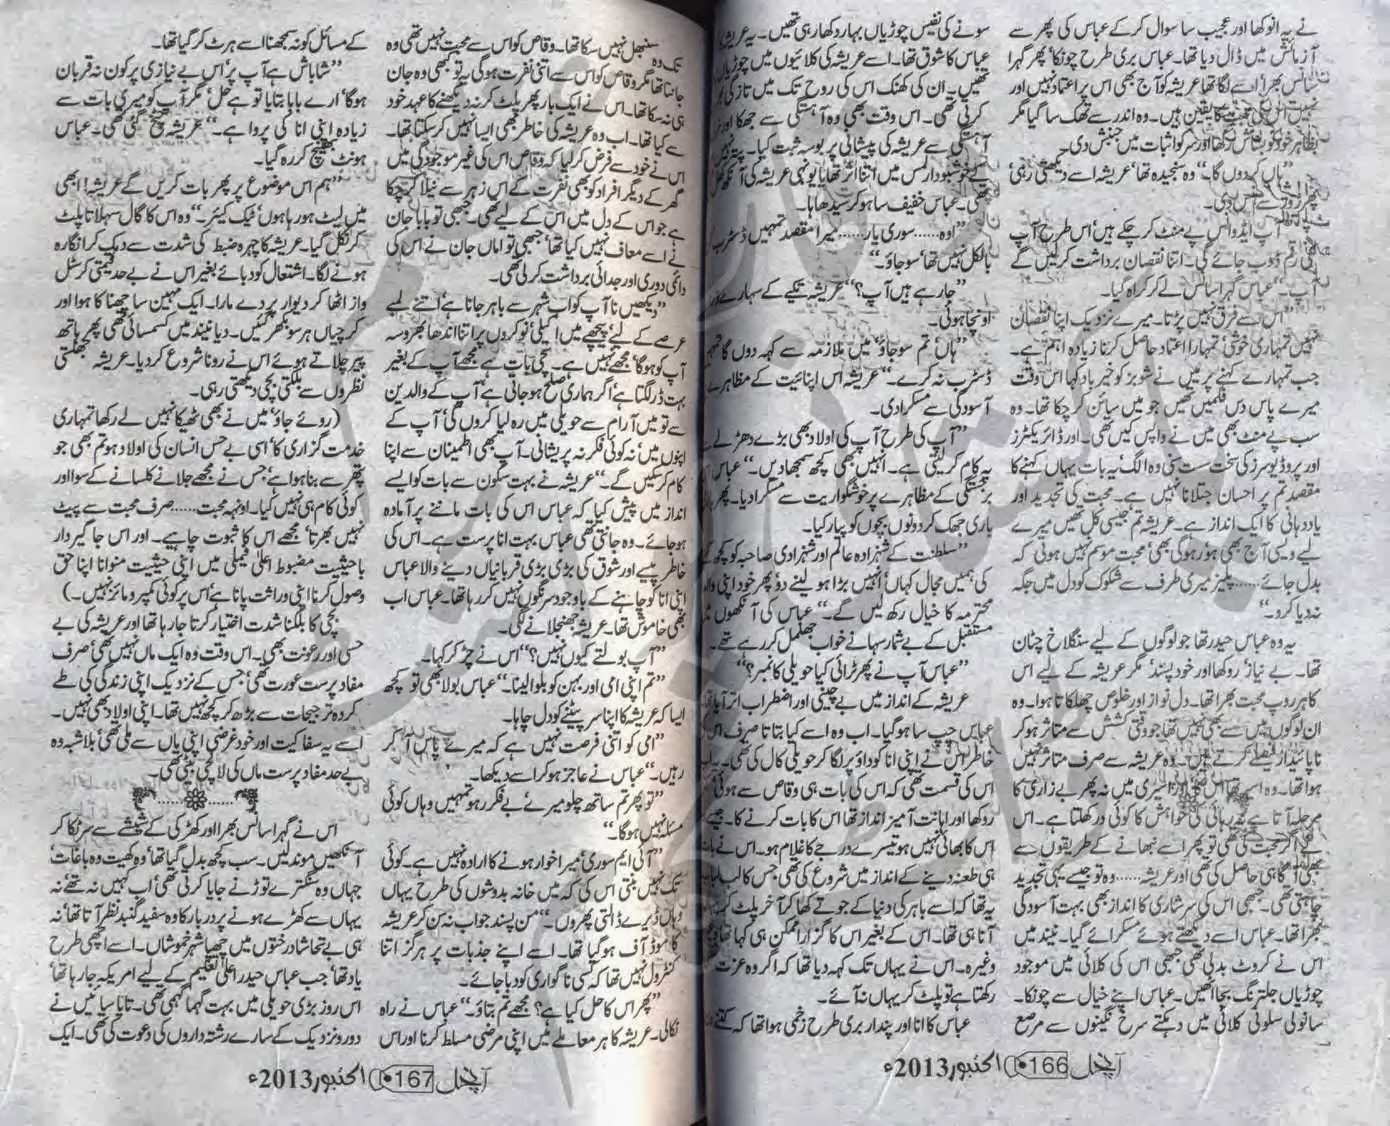 نے یہ انوکھا اور عجیب سا سوال کرکے عباس کی پھر سے
آزمائش میں ڈال دیا تھا۔ عباس بری طرح چونکا‘ پھر گہرا
سانس بھرا‘ اسے لگا تھا عریشہ کو آج بھی اس پر اعتماد نہیں اور
نہیں اس کی محبت کا یقین ہیں۔ وہ اندر سے تھک سا گیا مگر
بظاہر خود کو بشاش رکھا اور سر کو اثبات میں جنبش دی۔
”ہاں کہہ دوں گا۔“ وہ سنجیدہ تھا‘ عریشہ اسے دیکھتی رہی
پھر زور سے ہنس دی۔
آپ ایڈوانس پے منٹ کرچکے ہیں‘ اس طرح آپ
کی رقم ڈوب جائے گی۔ اتنا نقصان برداشت کرلیں گے
آپ۔“ عباس گہرا سانس لے کر کراہ گیا۔
”اس سے فرق نہیں پڑتا۔ میرے نزدیک اپنا نقصان
نہیں تمہاری خوشی‘ تمہارا اعتماد حاصل کرنا زیادہ اہم ہے۔
جب تمہارے کہنے پر میں نے شوبز کو خیر باد کہا اس وقت
میرے پاس دس فلمیں تھیں جو میں سائن کرچکا تھا۔ وہ
سب پے منٹ بھی میں نے واپس کیں تھی۔ اور ڈائریکٹرز
اور پروڈیوسرز کی سخت سست کی وہ الگ‘ یہ بات یہاں کہنے کا
مقصد تم پر احسان جتلانا نہیں ہے۔ محبت کی تجدید اور
یاد دہانی کا ایک انداز ہے۔ عریشہ تم جیسی کل تھیں میرے
لیے ویسی آج بھی ہو‘ رہوگی بھی‘ محبت موسم نہیں ہوتی کہ
بدل جائے...... پلیز میری طرف سے شکوک کو دل میں جگہ
نہ دیا کرو۔“
یہ وہ عباس حیدر تھا جو لوگوں کے لیے سنگلاخ چٹان
تھا۔ بے نیاز‘ روکھا اور خود پسند‘ مگر عریشہ کے لیے اس
کا ہر روپ محبت بھرا تھا۔ دل نواز اور خلوص چھلکاتا ہوا۔ وہ
ان لوگوں میں سے بھی نہیں تھا جو وقتی کشش سے متاثر ہوکر
ناپائیدار فیصلے کرتے ہیں۔ وہ عریشہ سے صرف متاثر نہیں
ہوا تھا۔ وہ اسیر تھا اس کا‘ اور اسیری میں نہ پھر بے زاری کا
مرحلہ آتا ہے نہ رہائی کی خواہش کا کوئی در کھلتا ہے۔ اس
نے اگر محبت کی تھی تو پھر اسے نبھانے کے طریقوں سے
بھی آگاہی حاصل کی تھی اور عریشہ...... وہ تو جیسے یہی تجدید
چاہتی تھی۔ جبھی اس کی سرشاری کا انداز بھی بہت آسودگی
بھرا تھا۔ عباس اسے دیکھتے ہوئے مسکرائے گیا۔ نیند میں
اس نے کروٹ بدلی تھی جبھی اس کی کلائی میں موجود
چوڑیاں جلترنگ بجا اٹھیں۔ عباس اپنے خیال سے چونکا۔
سانولی سلونی کلائی میں دہکتے سرخ نگینوں سے مرصع
سونے کی نفیس چوڑیاں بہار دکھا رہی تھیں۔ یہ عریشہ
عباس کا شوق تھا۔ اسے عریشہ کی کلائیوں میں چوڑیاں
تھیں۔ ان کی کھنک اس کی روح تک میں تازگی
کرتی تھی۔ اس وقت بھی وہ آہستگی سے جھکا اور
آہستگی سے عریشہ کی پیشانی پر بوسہ ثبت کیا۔
کے خوشبودار لمس میں اتنا اثر تھا یا یونہی عریشہ کی آنکھ کھل
تھی۔ عباس خفیف سا ہوکر سیدھا ہا۔
”اوہ...... سوری یار...... میرا مقصد تمہیں ڈسٹرب
بالکل نہیں تھا‘ سوجاؤ۔“
”جارہے ہیں آپ؟“ عریشہ تکیے کے سہارے
اونچا ہوئی۔
”ہاں تم سوجاؤ‘ میں ملازمہ سے کہہ دوں گا تمہیں
ڈسٹرب نہ کرے۔“ عریشہ اس اپنائیت کے مظاہرے
آسودگی سے مسکرا دی۔
”آپ کی طرح آپ کی اولاد بھی بڑے دھڑلے
یہ کام کرلیتی ہے۔ انہیں بھی کچھ سمجھا دیں۔“ عباس
برجستگی کے مظاہرے پر خوشگواریت سے مسکرا دیا۔ پھر
باری جھک کر دونوں بچوں کو پیار کیا۔
”سلطنت کے شہزادہ عالم اور شہزادی صاحبہ کو کچھ
کی ہمیں مجال کہاں‘ انہیں بڑا ہو لینے دو‘ پھر خود اپنی
محترمہ کا خیال رکھ لیں گے۔“ عباس کی آنکھوں
مستقبل کے بے شمار سہانے خواب جھلمل کررہے تھے۔
”عباس آپ نے پھر ٹرائی کیا حویلی کا نمبر؟“
عریشہ کے انداز میں بے چینی اور اضطراب اتر آیا
عباس چپ سا ہوگیا۔ اب وہ اسے کیا بتاتا صرف اس
خاطر اس نے اپنی انا کو داؤ پر لگا کر حویلی کال کی تھی۔
اس کی قسمت تھی کہ اس کی بات ہی وقاص سے ہوئی
روکھا اور اہانت آمیز انداز تھا اس کا بات کرنے کا۔ جیسے
اس کا بھائی نہیں ہو تیسرے درجے کا غلام ہو۔ اس نے بات
ہی طعنہ دینے کے انداز میں شروع کی تھی جس کا لب لباب
یہ تھا کہ اسے باہر کی دنیا کے جوتے کھا کر آخر پلٹ کر
آنا ہی تھا۔ اس کے بغیر اس کا گزارا ممکن ہی کہا تھا
وغیرہ۔ اس نے یہاں تک کہہ دیا تھا کہ اگر وہ عزت
رکھتا ہے تو پلٹ کر یہاں نہ آئے۔
عباس کا انا اور پندار بری طرح زخمی ہوا تھا کہ کتنے
آنچل 166 اکتوبر 2013ء
تک وہ سنبھل نہیں سکا تھا۔ وقاص کو اس سے محبت نہیں تھی وہ
جانتا تھا مگر وقاص کو اس سے اتنی نفرت ہوگی یہ تو کبھی وہ جان
ہی نہ سکا تھا۔ اس نے ایک بار پھر پلٹ کر نہ دیکھنے کا عہد خود
سے کیا تھا۔ اب وہ عریشہ کی خاطر بھی ایسا نہیں کرسکتا تھا۔
اس نے خود سے فرض کرلیا کہ وقاص اس کی غیر موجودگی میں
گھر کے دیگر افراد کو بھی نفرت کے اس زہر سے نیلا کرچکا
ہے جو اس کے دل میں اس کے لیے تھی۔ جبھی تو بابا جان
نے اسے معاف نہیں کیا تھا‘ جبھی تو اماں جان نے اس کی
دائمی دوری اور جدائی برداشت کرلی تھی۔
”دیکھیں نا آپ کو اب شہر سے باہر جانا ہے‘ اتنے لمبے
عرصے کے لیے پیچھے میں اکیلی‘ نوکروں پر اتنا اندھا بھروسہ
آپ کو ہوگا‘ مجھے نہیں ہے۔ سچی بات ہے مجھے آپ کے بغیر
بہت ڈر لگتا ہے‘ اگر ہماری صلح ہوجاتی ہے آپ کے والدین
سے تو میں آرام سے حویلی میں رہ لیا کروں گی‘ آپ کے
اپنوں میں‘ نہ کوئی فکر نہ پریشانی۔ آپ بھی اطمینان سے اپنا
کام کرسکیں گے۔“ عریشہ نے بہت سکون سے بات کو ایسے
انداز میں پیش کیا کہ عباس اس کی بات ماننے پر آمادہ
ہوجائے۔ وہ جانتی تھی عباس بہت انا پرست ہے۔ اس کی
خاطر پیسے اور شوق کی بڑی بڑی قربانیاں دینے والا عباس
اپنی انا کو چاہنے کے باوجود سرنگوں نہیں کررہا تھا۔ عباس اب
بھی خاموش تھا۔ عریشہ جھنجلانے لگی۔
”آپ بولتے کیوں نہیں؟“ اس نے چڑ کر کہا۔
”تم اپنی امی اور بہن کو بلوالینا۔“ عباس بولا بھی تو کچھ
ایسا کہ عریشہ کا اپنا سر پیٹنے کو دل چاہا۔
”امی کو اتنی فرصت نہیں ہے کہ میرے پاس آکر
رہیں۔“ عباس نے عاجز ہوکر اسے دیکھا۔
”تو پھر تم ساتھ چلو میرے‘ بے فکر رہو تمہیں وہاں کوئی
مسئلہ نہیں ہوگا۔“
”آئی ایم سوری‘ میرا خوار ہونے کا ارادہ نہیں ہے۔ کوئی
تک نہیں بنتی اس کی کہ میں خانہ بدوشوں کی طرح یہاں
وہاں ڈیرے ڈالتی پھروں۔“ من پسند جواب نہ سن کر عریشہ
کا موڈ آف ہوگیا تھا۔ اسے اپنے جذبات پر ہرگز اتنا
کنٹرول نہیں تھا کہ کسی ناگواری کو دبا جائے۔
”پھر اس کا حل کیا ہے؟ مجھے تم بتاؤ۔“ عباس نے راہ
نکالی۔ عریشہ کا ہر معاملے میں اپنی مرضی مسلط کرنا اور اس
کے مسائل کو نہ سمجھنا اسے ہرٹ کرگیا تھا۔
”شاباش ہے آپ پر‘ اس بے نیازی پر کون نہ قربان
ہوگا‘ ارے بابا بتایا تو ہے حل‘ مگر آپ کو میری بات سے
زیادہ اپنی انا کی پروا ہے۔“ عریشہ چیخ گئی تھی۔ عباس
ہونٹ بھینچ کر رہ گیا۔
”ہم اس موضوع پر پھر بات کریں گے عریشہ! ابھی
میں لیٹ ہورہا ہوں‘ ٹیک کیئر۔“ وہ اس کا گال سہلاتا پلٹ
کر نکل گیا۔ عریشہ کا چہرہ ضبط کی شدت سے دہک کر انگارہ
ہونے لگا۔ اشتعال کو دبائے بغیر اس نے بے حد قیمتی کرسٹل
واز اٹھا کر دیوار پر دے مارا۔ ایک مہین سا چھنا کا ہوا اور
کرچیاں ہر سو بکھر گئیں۔ دیا نیند میں کسمسائی تھی پھر ہاتھ
پیر چلاتے ہوئے اس نے رونا شروع کردیا۔ عریشہ جھلستی
نظروں سے بلکتی بچی دیکھتی رہی۔
(روئے جاؤ‘ میں نے بھی ٹھیکا نہیں لے رکھا تمہاری
خدمت گزاری کا‘ اسی بے حس انسان کی اولاد ہو تم بھی جو
پتھر سے بنا ہوا ہے‘ جس نے مجھے جلانے کلسانے کے سوا اور
کوئی کام ہی نہیں کیا۔ اونہہ محبت...... صرف محبت سے پیٹ
نہیں بھرتا‘ مجھے اس کا ثبوت چاہیے۔ اور اس جاگیردار
باحیثیت مضبوط اعلیٰ فیملی میں اپنی حیثیت منوانا اپنا حق
وصول کرنا اپنی وراثت پانا ہے‘ اس پر کوئی کمپرومائز نہیں۔)
بچی کا بلکنا شدت اختیار کرتا جارہا تھا اور عریشہ کی بے
حسی اور رعونت بھی۔ اس وقت وہ ایک ماں نہیں تھی‘ صرف
مفاد پرست عورت تھی‘ جس کے نزدیک اپنی زندگی کی طے
کردہ ترجیحات سے بڑھ کر کچھ نہیں تھا۔ اپنی اولاد بھی نہیں۔
اسے یہ سفاکیت اور خود غرضی اپنی ماں سے ملی تھی‘ بلاشبہ وہ
بے حد مفاد پرست ماں کی لالچی بیٹی تھی۔
اس نے گہرا سانس بھرا اور کھڑکی کے شیشے سے سر ٹکا کر
آنکھیں موندلیں۔ سب کچھ بدل گیا تھا‘ وہ کھیت وہ باغات‘
جہاں وہ سنگترے توڑنے جایا کرتی تھی‘ اب کہیں نہ تھے‘ نہ
یہاں سے کھڑے ہونے پر دربار کا وہ سفید گنبد نظر آتا تھا‘ نہ
ہی بے تحاشا درختوں میں چھپا شہر خموشاں۔ اسے اچھی طرح
یاد تھا‘ جب عباس حیدر اعلیٰ تعلیم کے لیے امریکہ جارہا تھا‘
اس روز بڑی حویلی میں بہت گہما گہمی تھی۔ تایا سائیں نے
دور و نزدیک کے سارے رشتہ داروں کی دعوت کی تھی۔ ایک
آنچل 167 اکتوبر 2013ء